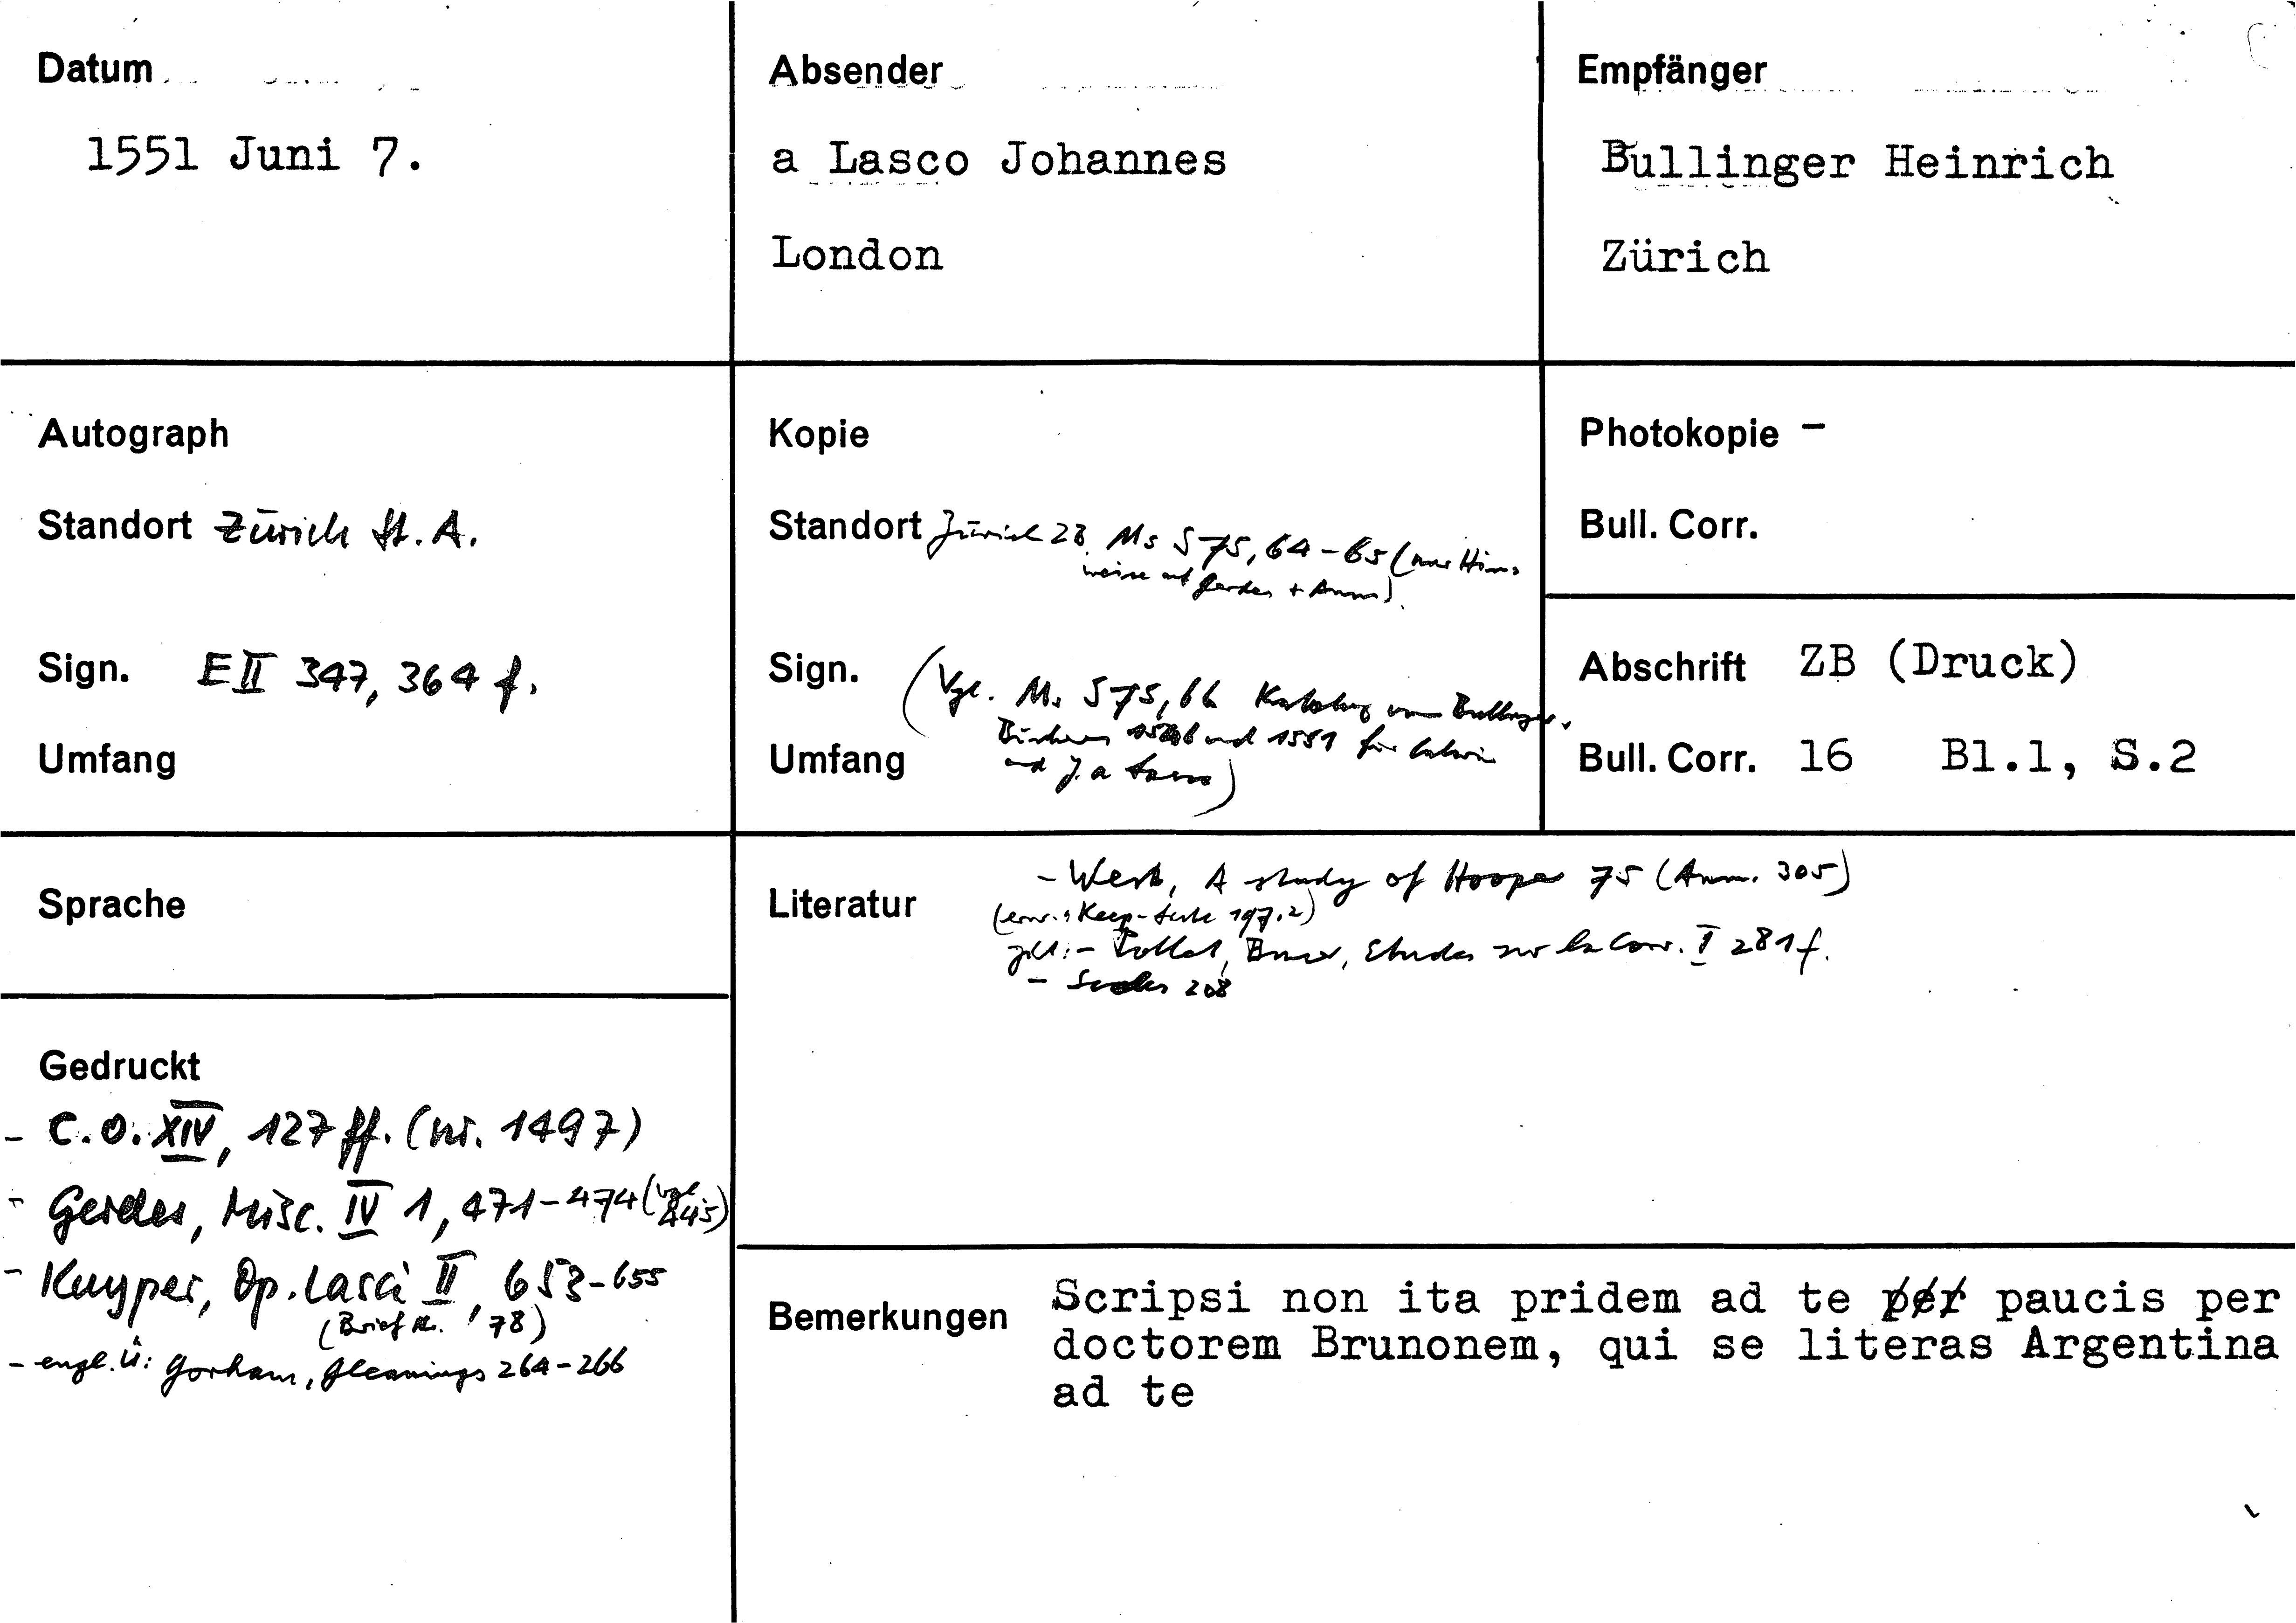 Datum
1551 Juni 7.
Absender
a Lasco Johannes
London
Empfänger
Bullinger Heinrich
Zürich
Autograph
Standort Zürich St. A.
Sign. E II 347, 364 f.
Umfang
Kopie
Standort Zürich ZB, Ms S 75, 64-65 (nur Hin-
weise auf Gerdes + Anm).
Sign. (Vgl. Ms S 75, 66 Katalog von Bullinger.
Büchern und 1551 für Calvin
Umfang und J. a Lasco)
Photokopie -
Bull. Corr.
Abschrift ZB (Druck)
Bull. Corr. 16 Bl.1, S.2
Sprache
Literatur - West, A study of Hooper 75 (Anm. 305)
197.2)
zit: - Pollet, Bucer, Etudes sur la Corr. I 281 f.
- 208
Gedruckt
- C.O. XIV, 127 ff. (nr. 1497)
- Gerdes, Misc. IV 1, 471-474 (vgl. 445)
- Kuyper, Op. Lasci II, 653-655
(Brief Nr. 78)
- engl. Ü: Gorham, Gleanings 264-266
Bemerkungen Scripsi non ita pridem ad te per paucis per
doctorem Brunonem, qui se literas Argentina
ad te